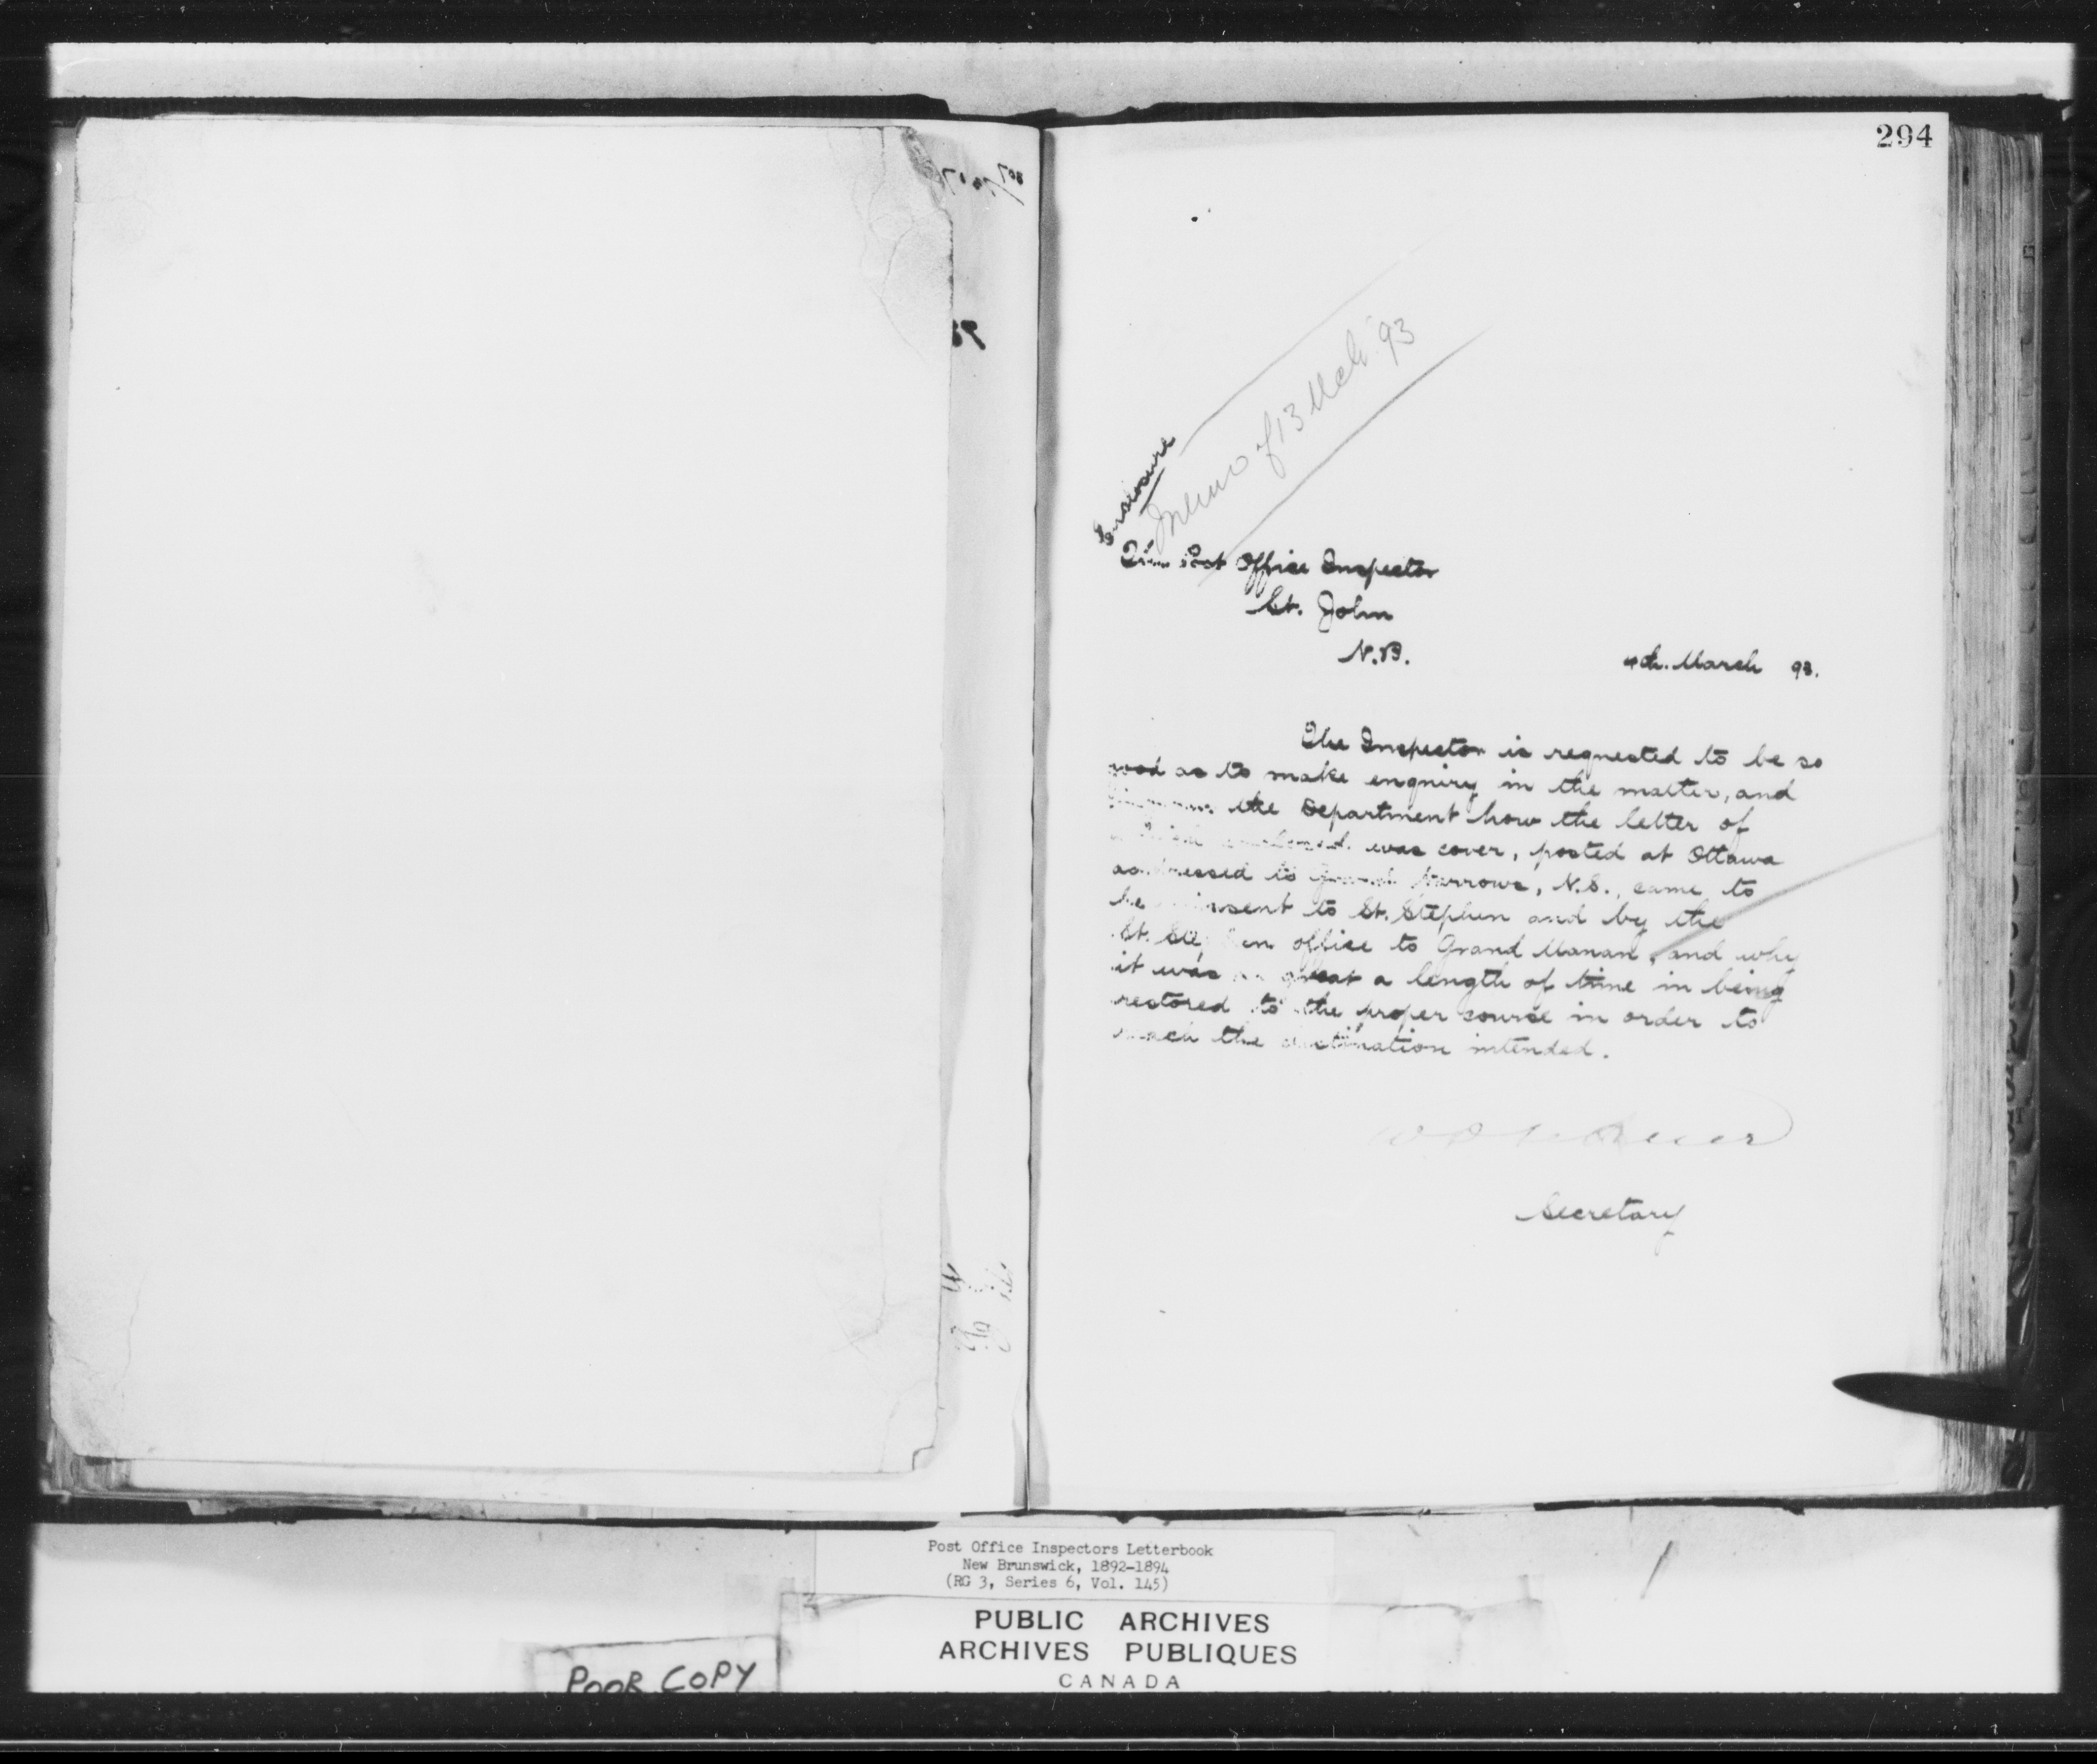 294
Enclosure
Memo of 13 Mch '93
Post Office Inspector
St. John
N.B.
4th. March 93.
The Inspector is requested to be so
good as to make enquiry in the matter, and
the Department how the letter of
was cover, posted at Ottawa
addressed to Grand Narrows, N.S., came to
be missent to St. Stephen and by the
St. Stephen office to Grand Manan, and why
it was so great a length of time in being
restored to the proper course in order to
reach the destination intended.
Secretary
Post Office Inspectors Letterbook
New Brunswick, 1892-1894
(RG 3, Series 6, Vol. 145)
PUBLIC ARCHIVES
ARCHIVES PUBLIQUES
CANADA
POOR COPY